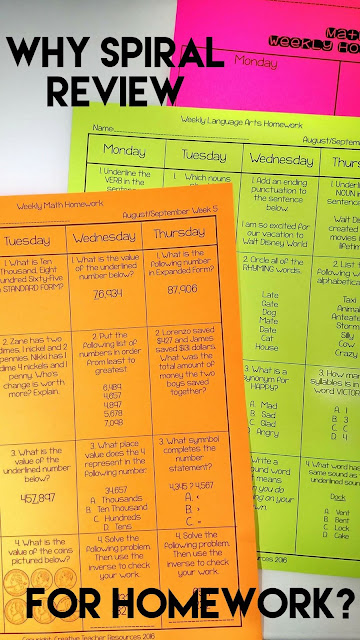 WHY SPIRAL
REVIEW
Weekly Ho
Monday
Weekly Language Arts Homework
Name
August/Septem
Monday
Tuesday
Wednesday
Thurs
1. Underline the
VERB in the
1. Which nouns
1. Add an ending
punctuation to
the sentence
below.
I am so excited for
our vacation to
Walt Disney World
1. Underlin
NOUN in
sentence
Walt Dis
created
movies i
lifetim
2. Circle all of the
RHYMING words.
Late
Gate
Dog
Mate
Date
Cat
House
2. List t
following w
alphabetica
Taxi
Animal
Anteate
Storm
Silly
Cow
Crazy
3. What is a
synonym for
HAPPY?
A. Mad
B. Sad
C. Glad
D. Angry
3. How man
syllables is in
word VICTOR
A. 1
B. 3
C. 2
D. 4
4. Word has
same sound as
underlined soun
Dock
A. Vent
B. Bent
C. Lock
D. Cake
Weekly Math Homework
August/September Week 5
Tuesday
Wednesday
Thursday
1. What is Ten
Thousand, Eight
Hundred Sixty-five
STANDARD FORM?
1. What is the value
of the underlined
number below?
76,934
1. What is the
following number
in Expanded Form?
87,906
2. Zane has two
dimes, 1 nickel and 2
pennies. Nikki has 1
dime 4 nickels and 1
penny. Who's
change is worth
more? Explain.
2. Put the
following list of
numbers in order
from least to
greatest.
6,489
4,657
4,897
5,678
7,098
2. Lorenzo saved
$427 and James
saved $31 dollars.
What was the
total amount of
money the two
boys saved
together?
3. What is the
value of the
underlined number
below?
457,897
3. What place
value does the 4
represent in the
following number.
34,657
A. Thousands
B. Ten Thousand
C. Hundreds
D. Tens
3. What symbol
completes the
number
statement?
4,345 ? 4,567
A. <
B. >
C. =
4. What is the
value of the coins
pictured below?
4. Solve the
following problem.
Then use the
inverse to check
your work.
4. Solve the
following problem.
Then use the
inverse to check
your work.
Copyright Creative Teacher Resources 2016
Resources 2016
FOR HOMEWORK?